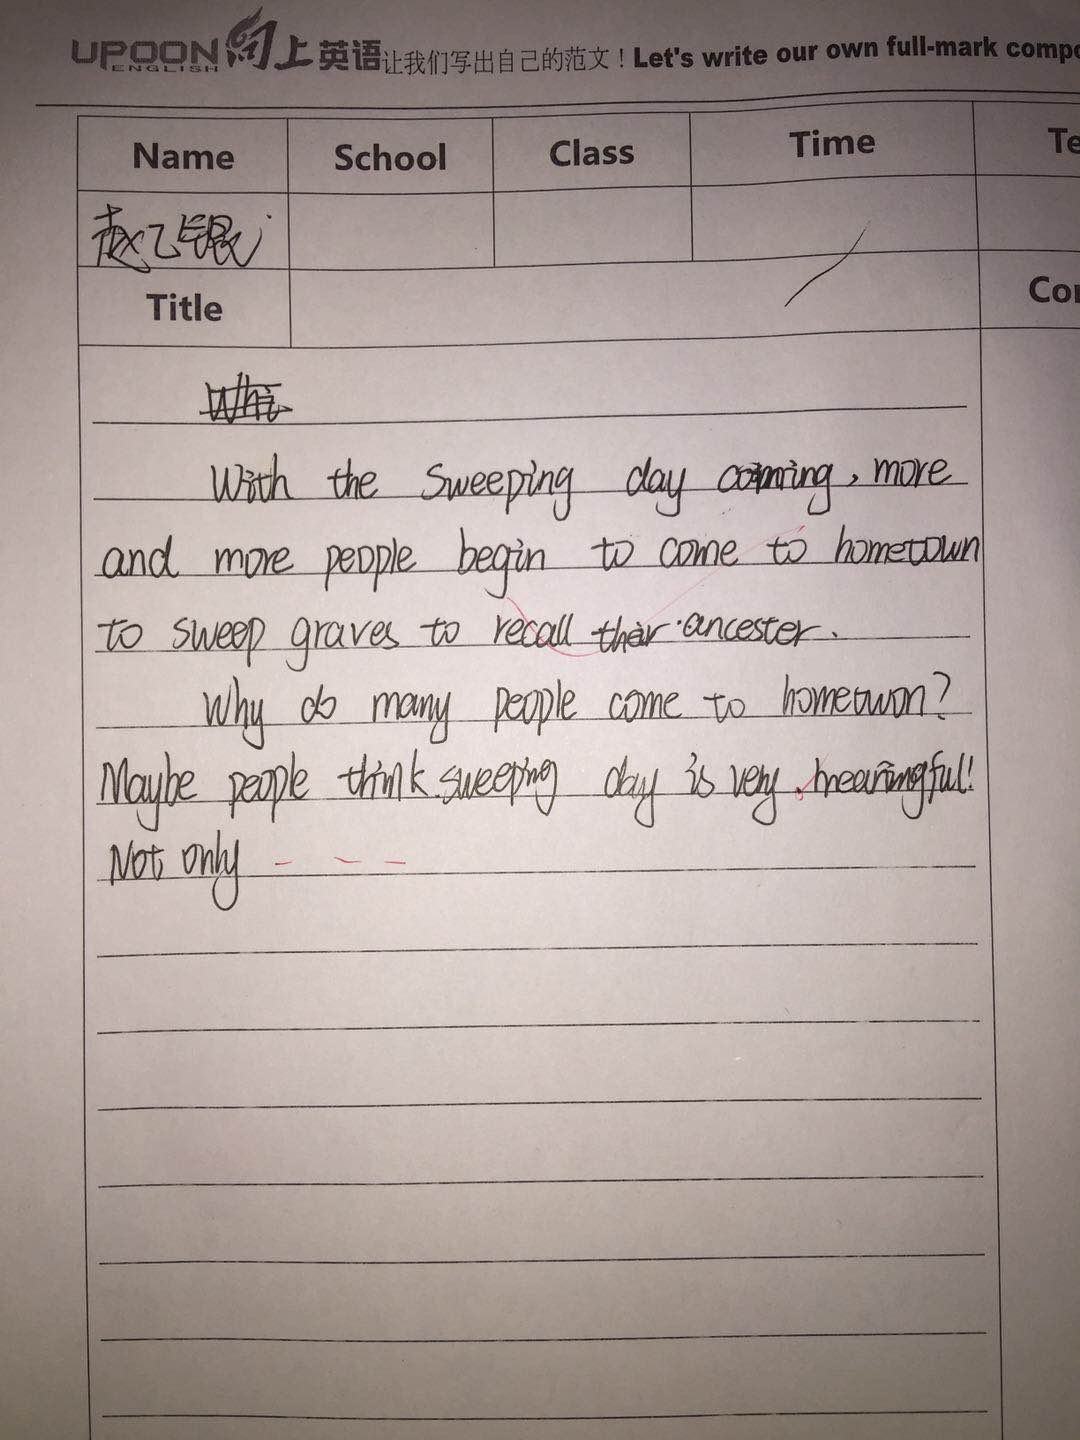 UPOON 向上英语 让我们写出自己的范文！Let's write our own full-mark compo
ENGLISH
Name School Class Time Te
赵乙锟
Title Con
With the Sweeping day coming, more
and more people begin to come to hometown
to sweep graves to recall their ancester.
Why do many people come to hometwon?
Maybe people think sweeping day is very meaningful!
Not only